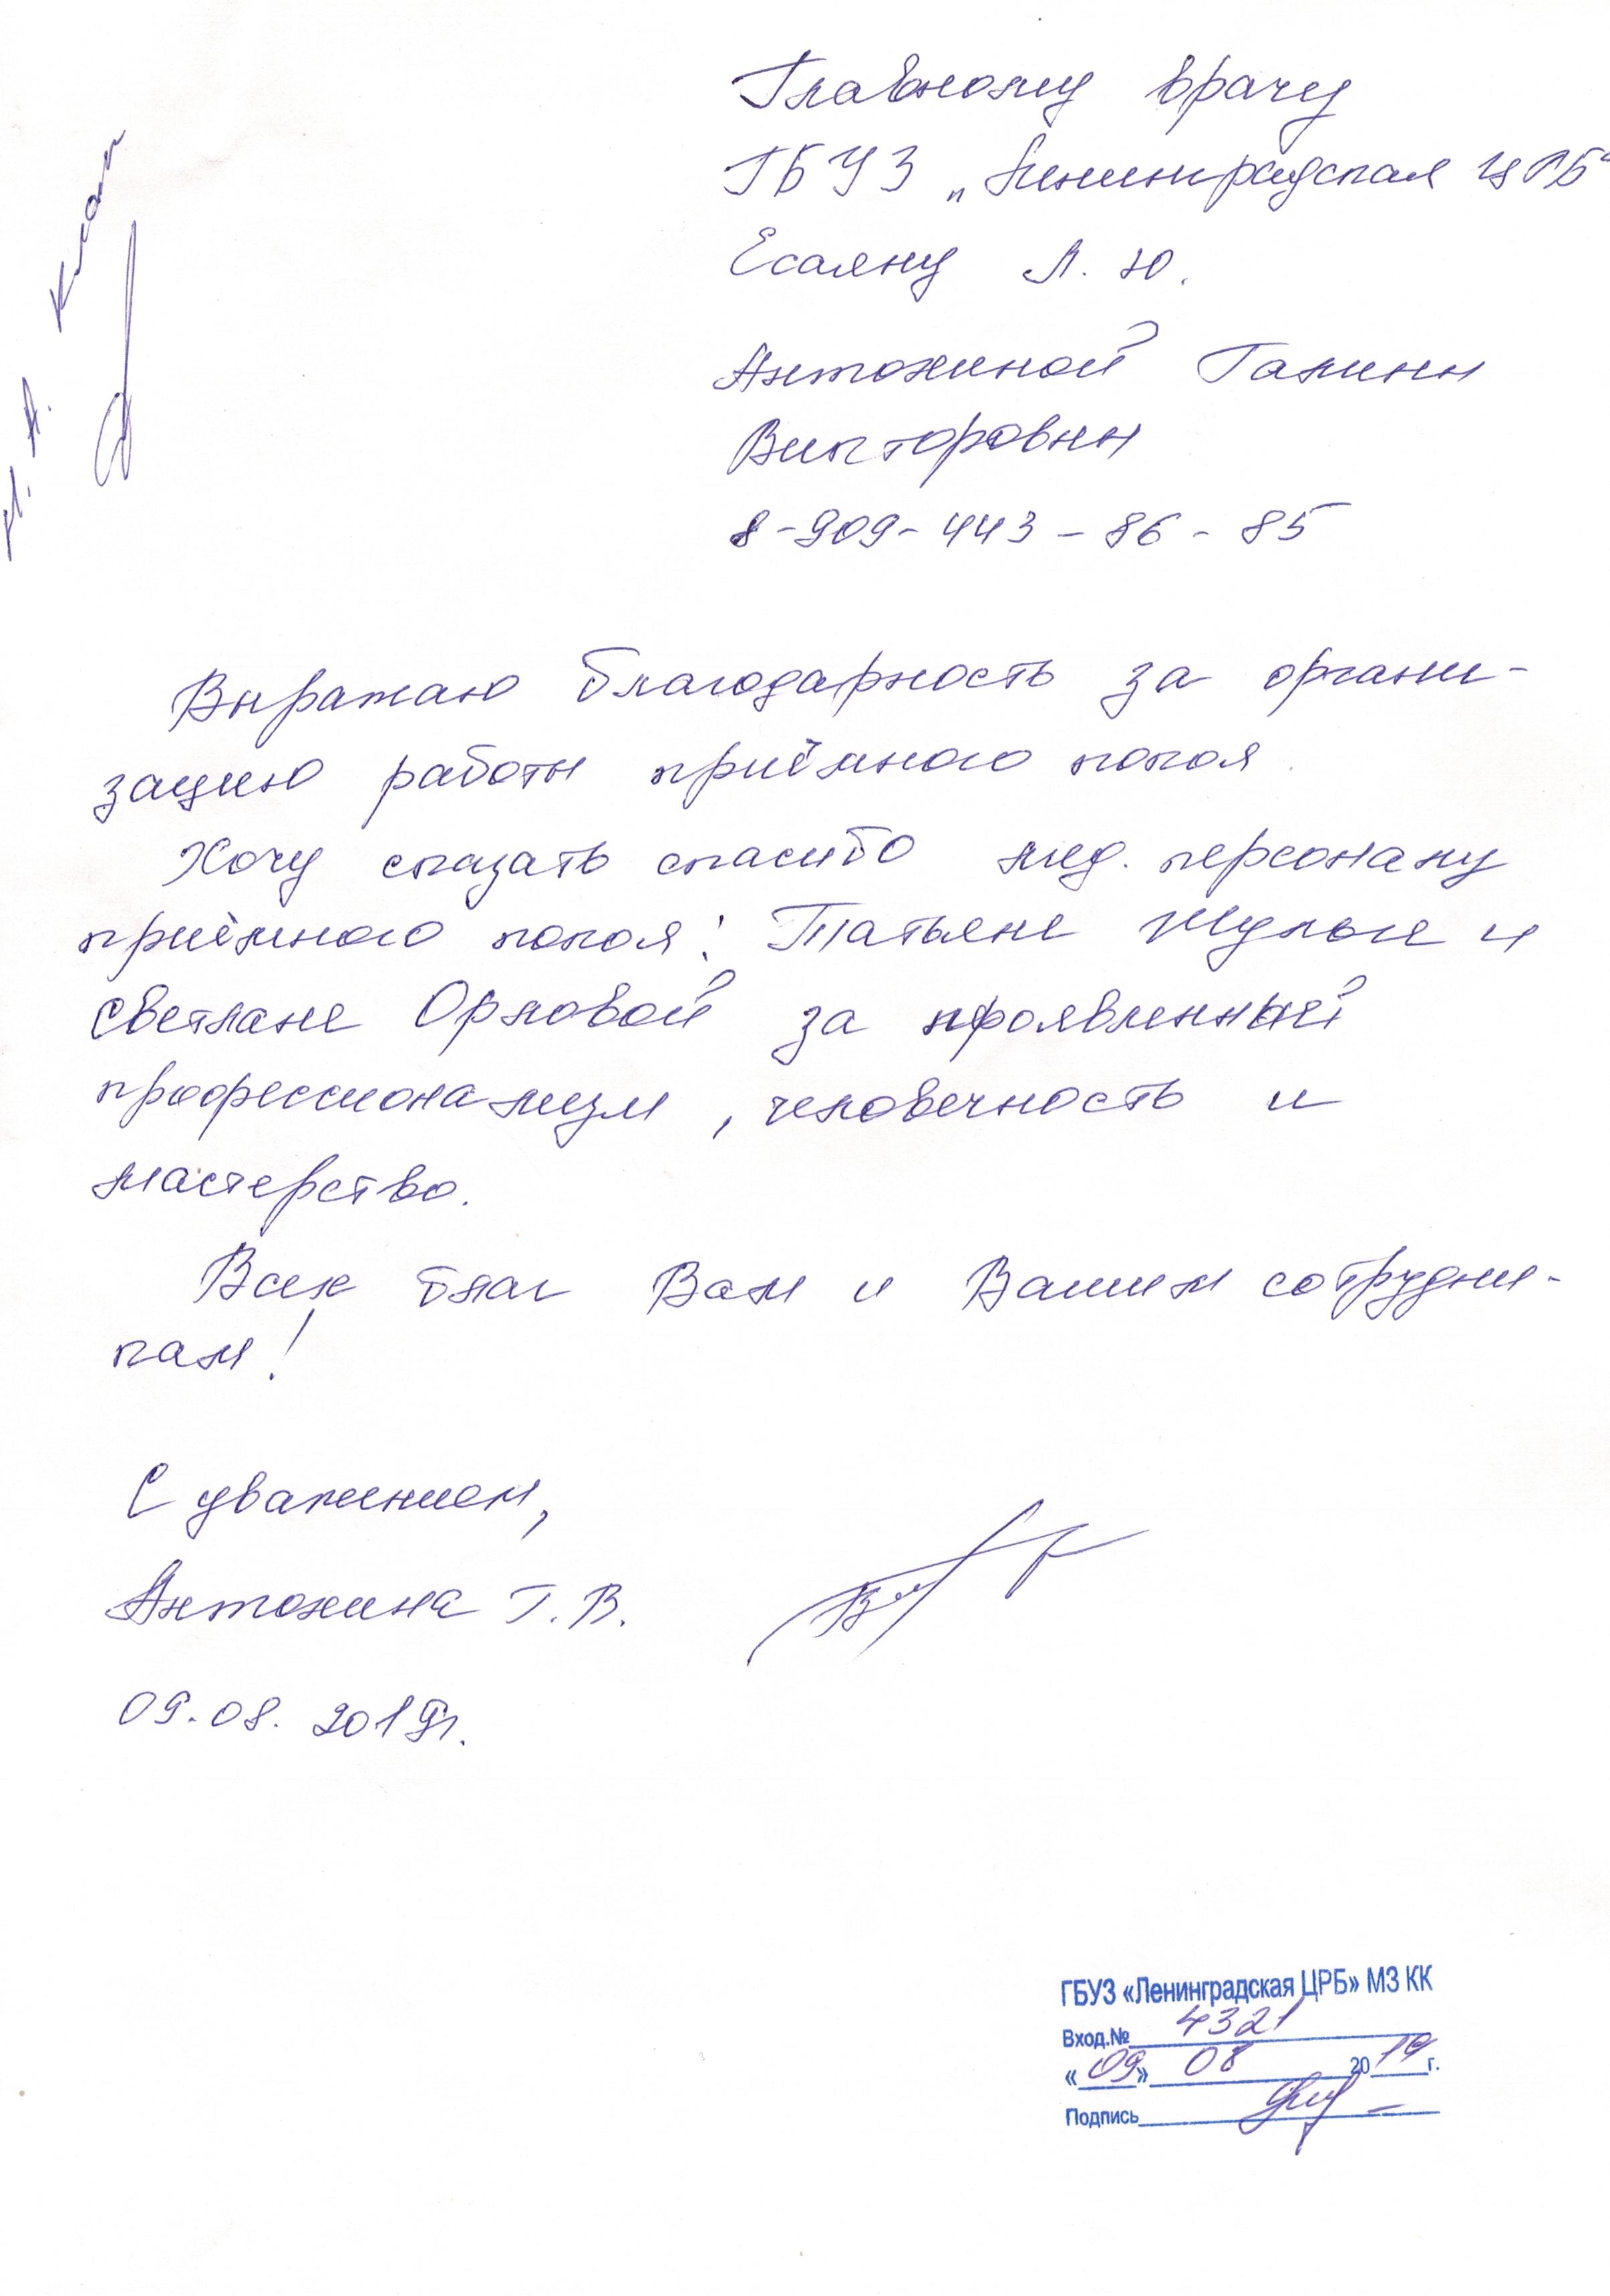 Главному врачу
ГБУЗ „Ленинградская ЦРБ"
Есаяну Л. Ю.
Антониной Галины
Викторовны
8-909-443-86-85
Выражаю благодарность за органи-
зацию работы приёмного покоя.
Хочу сказать спасибо мед. персоналу
приёмного покоя: Татьяне и
Светлане Орловой за проявленный
профессионализм, человечность и
мастерство.
Всех благ Вам и Вашим сотрудни-
кам!
С уважением,
Антонина Г. В.
09.08.2019г.
ГБУЗ «Ленинградская ЦРБ» МЗ КК
Вход.№ 4321
«09» 08 2019 г.
Подпись